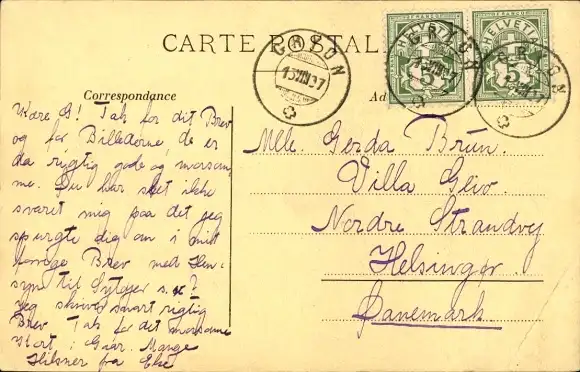 CARTE POSTALE
Correspondance
Ad
CRYON
15 VIII 07
HELVETIA
FRANCO
5
HELVETIA
FRANCO
Kære G! Tak for dit Brev
og for Billederne, de er
da rigtig gode og morsom
me. Du har slet ikke
svaret mig paa det jeg
spurgte dig om i mit
forrige Brev med Hen-
syn til
Jeg skriver snart rigtig
Brev Tak for det morsomme
Kort i Gaar. Mange
Hilsner fra Else
Mlle. Gerda Brun.
Villa Gliv.
Nordre Strandvej
Helsingør.
Danemark.